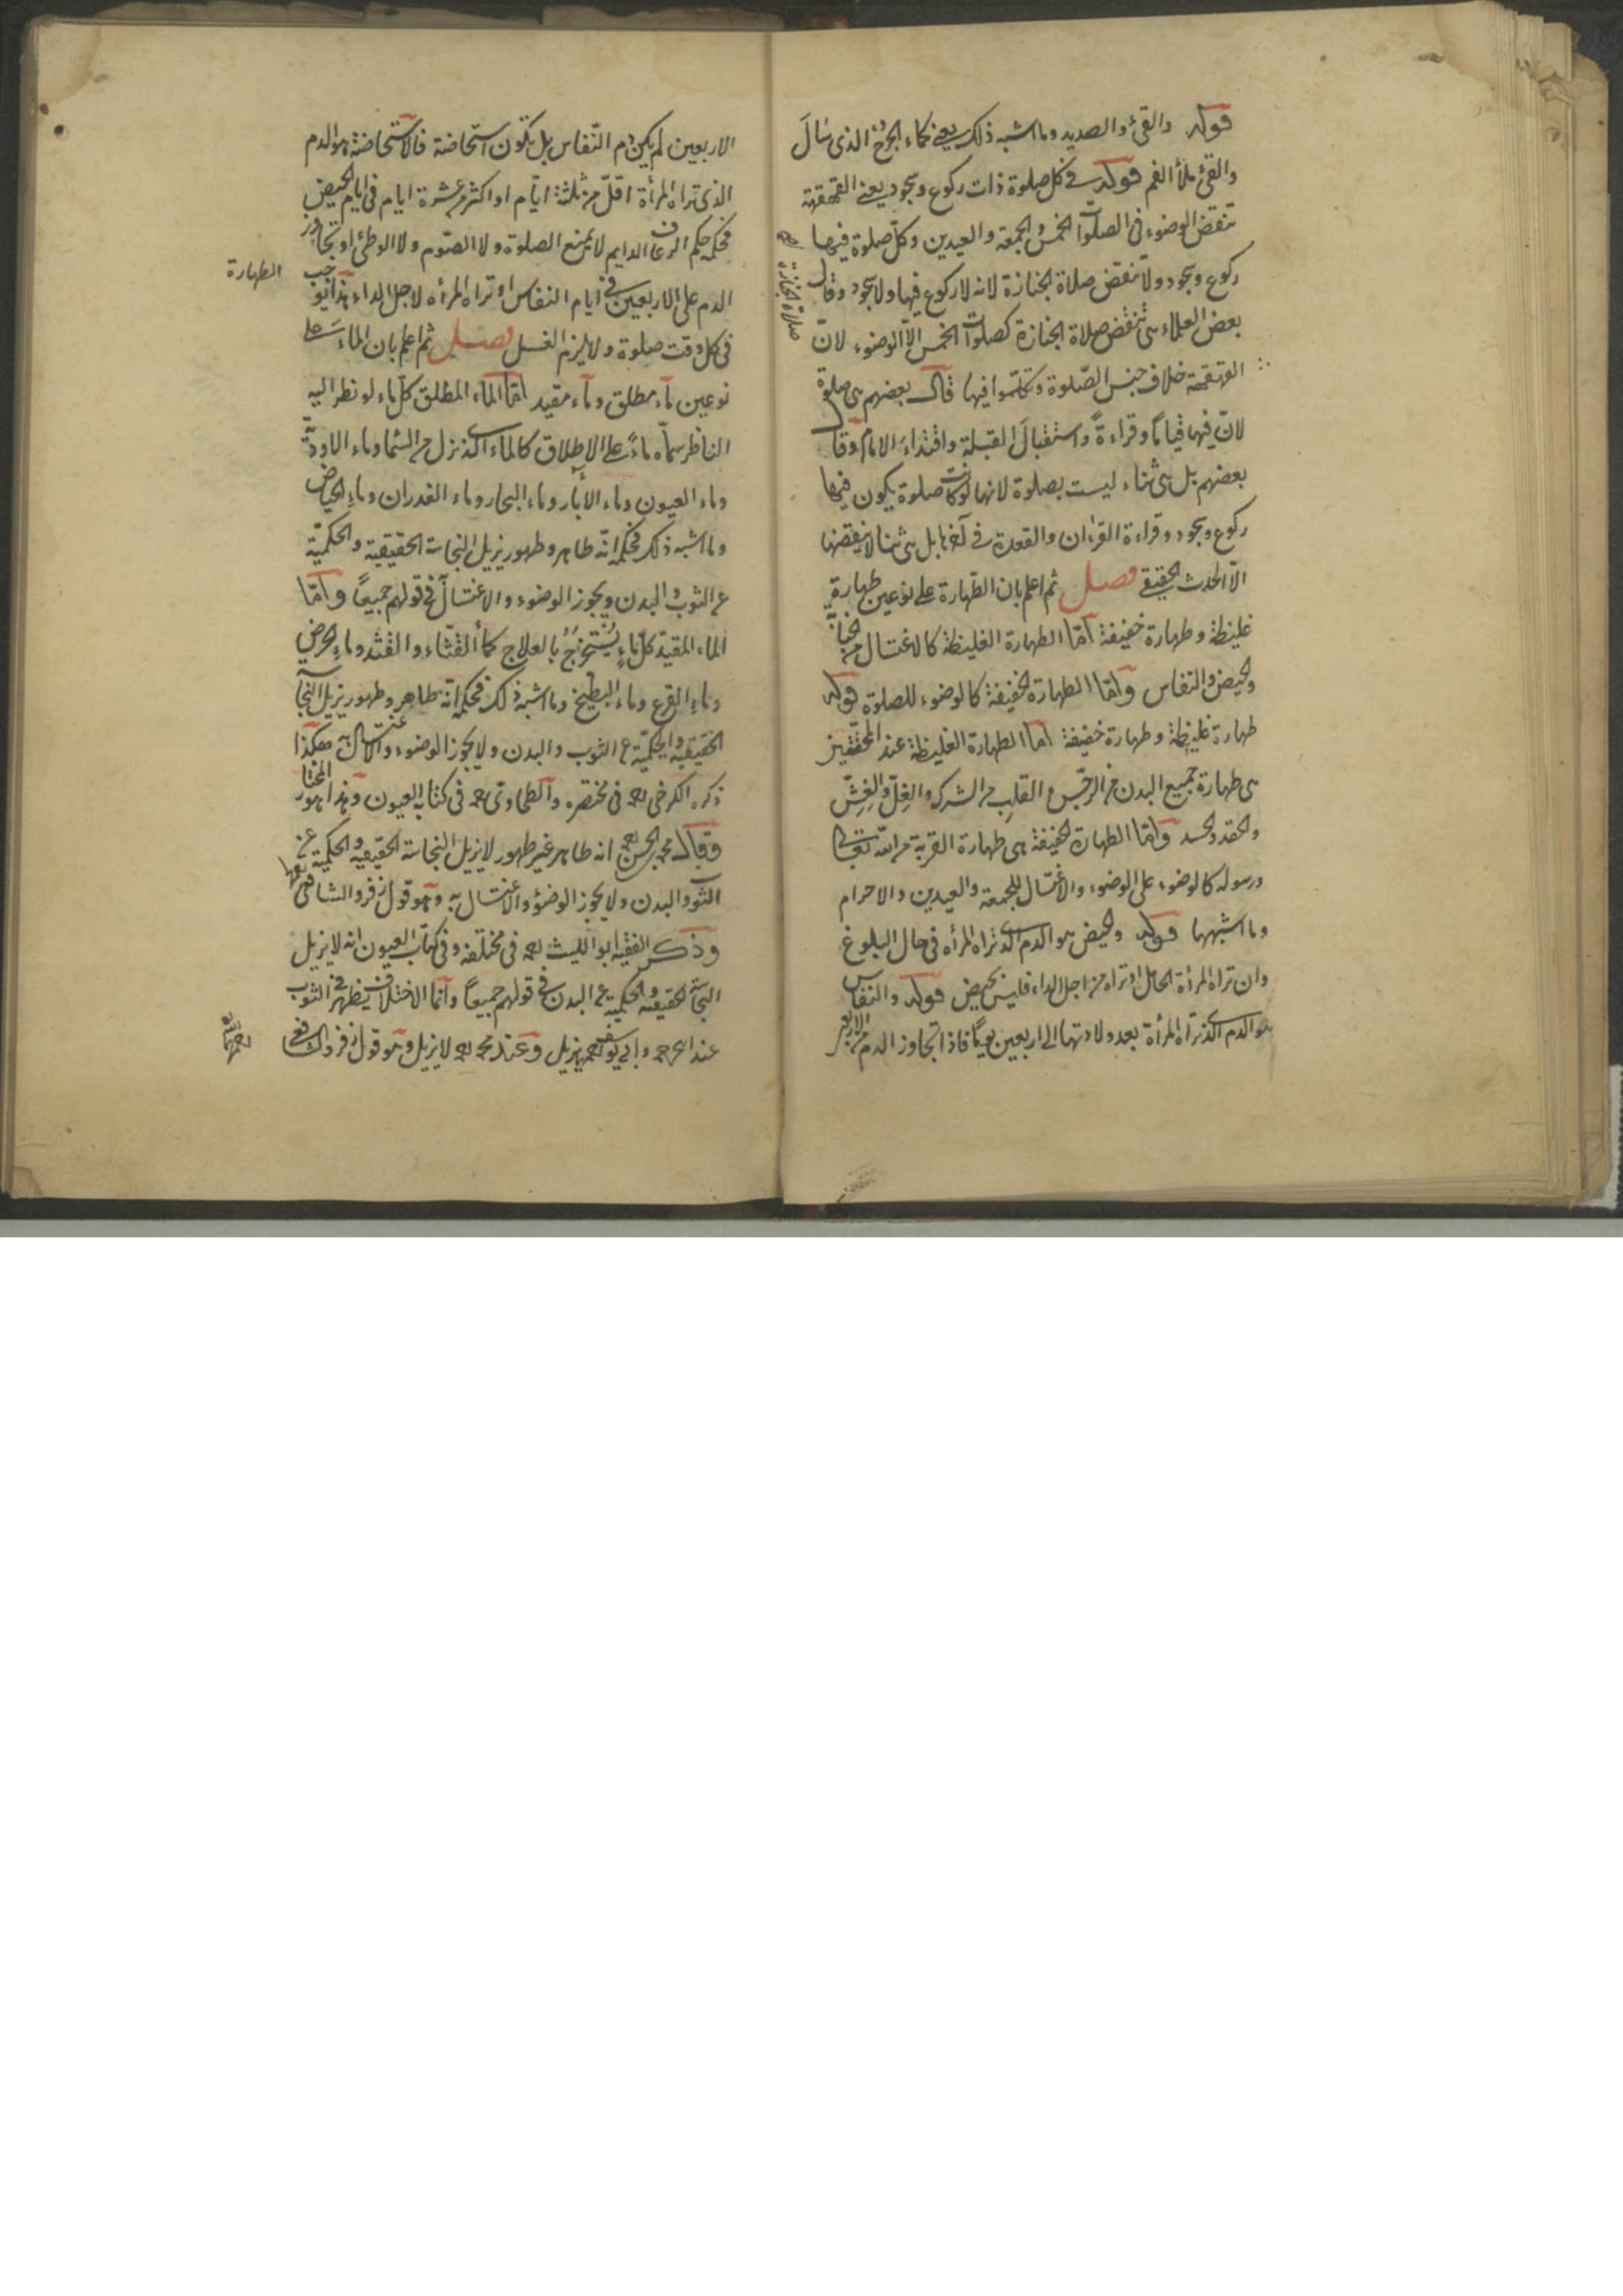 قوله والقئ والصديد وما اشبه ذلك يعني كماء الجرح الذى سَالَ
والقئ ملأ الفم قوله في كل صلوة ذات ركوع وسجود يعني القهقهة
تنقض الوضوء فى الصلوات الخمس والجمعة والعيدين وكل صلوة فيها
ركوع وسجود ولا تنقض صلاة الجنازة لانه لا ركوع فيها ولا سجود وقال
بعض العلماء تنقض صلاة الجنازة كصلوات الخمس الا الوضوء لانّ
القهقهة خلاف جنس الصّلوة وتكلّموا فيها قال بعضهم هى صلوة
لانّ فيها قياماً وقراءةً واستقبالَ القبلة واقتداءَ الامام وقال
بعضهم بل هى ثناء ليست بصلوة لانها لو كانت صلوة يكون فيها
ركوع وسجود وقراءة القرءان والقعدة فى آخرها بل هى ثنا لا ينقضها
الّا الحدث الحقيقي فصل ثم اعلم بان الطّهارة على نوعين طهارة
غليظة وطهارة خفيفة امّا الطهارة الغليظة كالاغتسال من الجنابة
والحيض والنفاس وامّا الطهارة الخفيفة كالوضوء للصلوة قوله
طهارة غليظة وطهارة خفيفة امّا الطهارة الغليظة عند المحققين
هى طهارة جميع البدن من الرجس والقلبِ من الشرك والغِلّ والغِشّ
والحقد والحسد وامّا الطهارة الخفيفة هى طهارة القربة من الله تعالى
ورسوله كالوضوء على الوضوء والاغتسال للجمعة والعيدين والاحرام
وما اشبهها قوله والحيض هو الدم الذى تراه المرأه فى حال البلوغ
وان تراه المرأة الحامل او تراه من اجل الداء فليس بحيض قوله والنفاس
هو الدم الذى تراه المرأة بعد ولادتها الى اربعين يوماً فاذا تجاوز الدم من الاربعين
صلاة الجنازة
الاربعين لم يكن دم النّفاس بل تكون استحاضة فالاستحاضة هو الدم
الذى تراه المرأة اقلّ من ثلثة ايّام او اكثر من عشرة ايام فى ايام الحيض
فحكمه حكم الرعاف الدايم لا يمنع الصلوة ولا الصّوم ولا الوطئ او تجاوز
الدم على الاربعين في ايام النفاس او تراه المرأه لاجل الداء هذا يوجب
الطهارة
فى كل وقت صلوة ولا يلزم الغسل فصل ثم اعلم بان الماءَ على
نوعين ماء مطلق وماء مقيد امّا الماء المطلق كلّ ماء لو نظر اليه
الناظر سمّاه ماءً على الاطلاق كالماء الذى نزل من السّما وماء الاودية
وماء العيون وماء الآبار وماء البحار وماء الغدران وماءِ الحياض
وما اشبه ذلك فحكمه انّه طاهر وطهور يزيل النجاسة الحقيقية والحكميّة
عن الثوب والبدن ويجوز الوضوء والاغتسال به فى قولهم جميعًا وامّا
الماء المقيّد كلّ ماءٍ يُسْتَخْرَجُ بالعلاج كماء القثّاء والقثد وماء الحرض
وماءِ القرع وماء البطّيخ وما اشبه ذلك فحكمه انّه طاهر وطهور يزيل النجاسة
الحقيقيه والحكميّة عن الثوب والبدن ولا يجوز الوضوء والاغتسال به هكذا
ذكره الكرخى رحمه فى مختصره والطحاوى رحمه فى كتابه العيون وهذا هو المختار
وقال محمد بن الحسن رحمه انه طاهر غير طهور لا يزيل النجاسة الحقيقيه والحكمية عن
الثوب والبدن ولا يجوز الوضوء والاغتسال به وهو قول زفر والشافعى
وذكر الفقيه ابو الليث رحمه فى مختلفه وفى كتاب العيون انه لا يزيل
النجاسة الحقيقيه والحكمية عن البدن في قولهم جميعًا وانّما الاختلاف يظهر في الثوب
وابى يوسف رحمه يزيل وعند محمد رحمه لا يزيل وهو قول زفر والشافعى
رحمهما الله